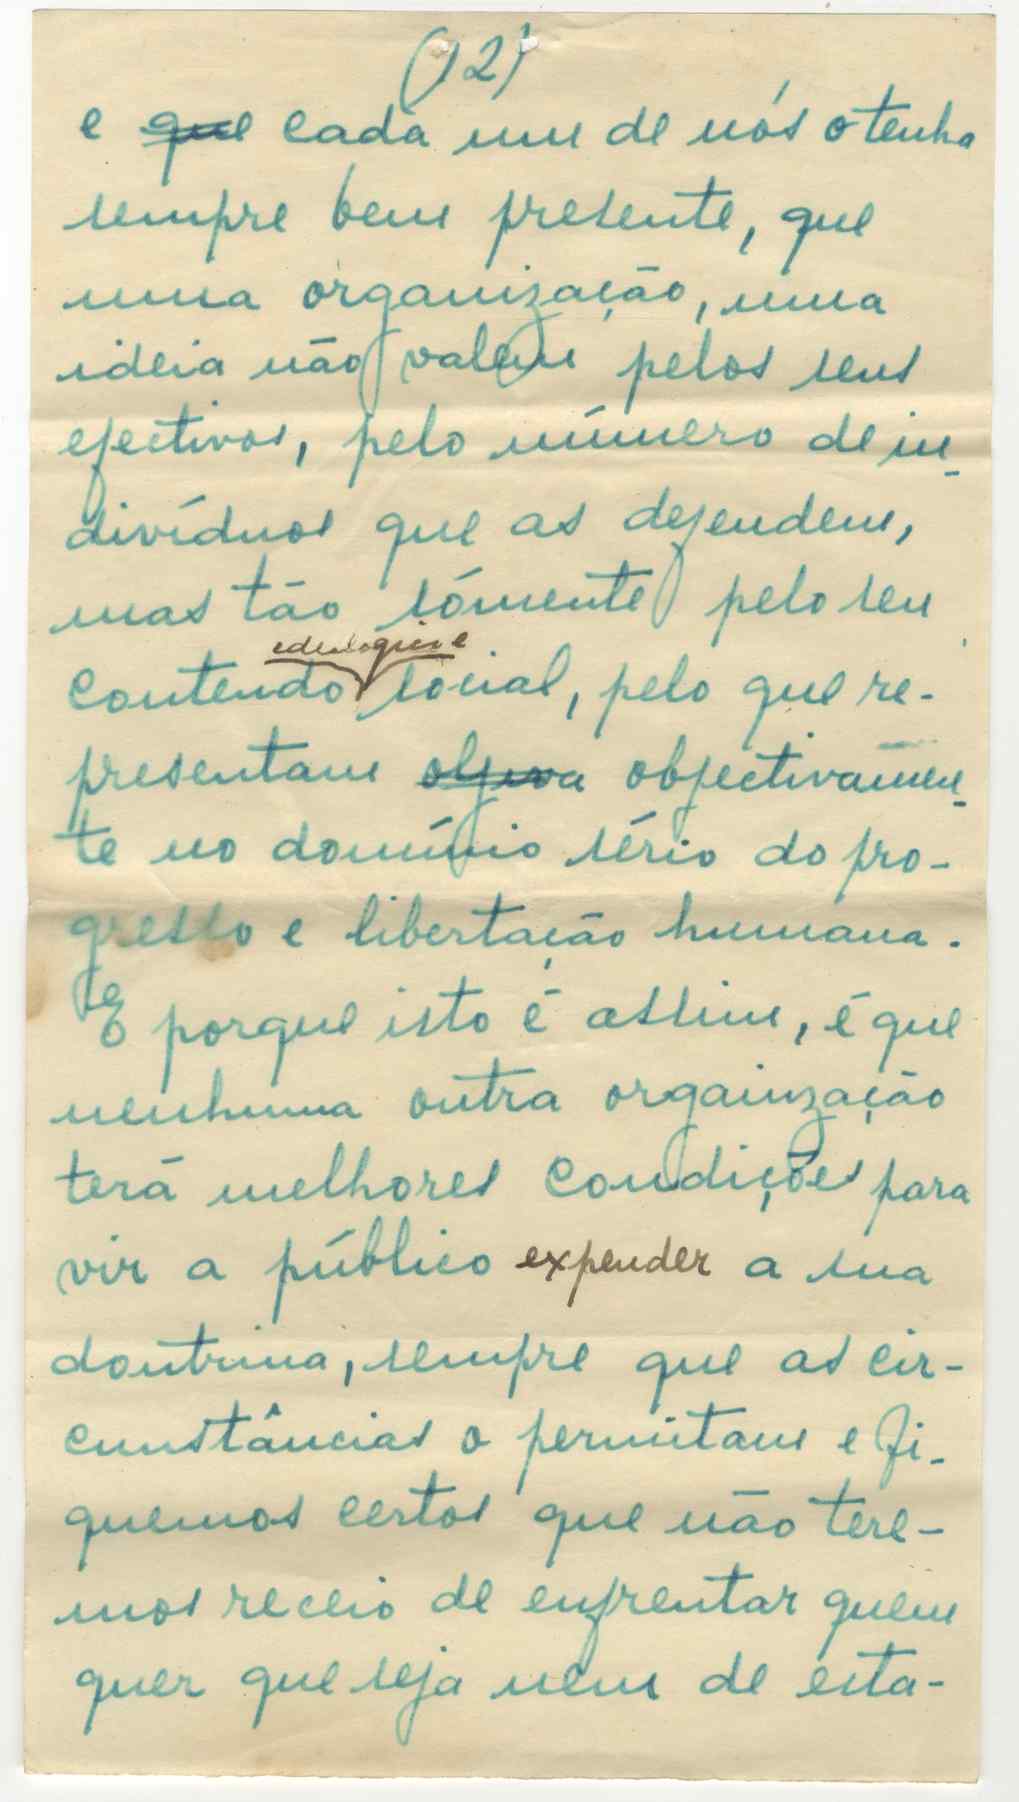 (12)
e que cada um de nós o tenha
sempre bem presente, que
uma organização, uma
ideia não valem pelos seus
efectivos, pelo número de in-
divíduos que as defendem,
mas tão sómente pelo seu
ideologico e
contendo social, pelo que re-
presentam objectivamen-
te no domínio sério do pro-
gresso e libertação humana.
E porque isto é assim, é que
nenhuma outra organização
terá melhores condições para
vir a público expender a sua
doutrina, sempre que as cir-
cunstâncias o permitam e fi-
quemos certos que não tere-
mos receio de enfrentar quem
quer que seja nem de esta-